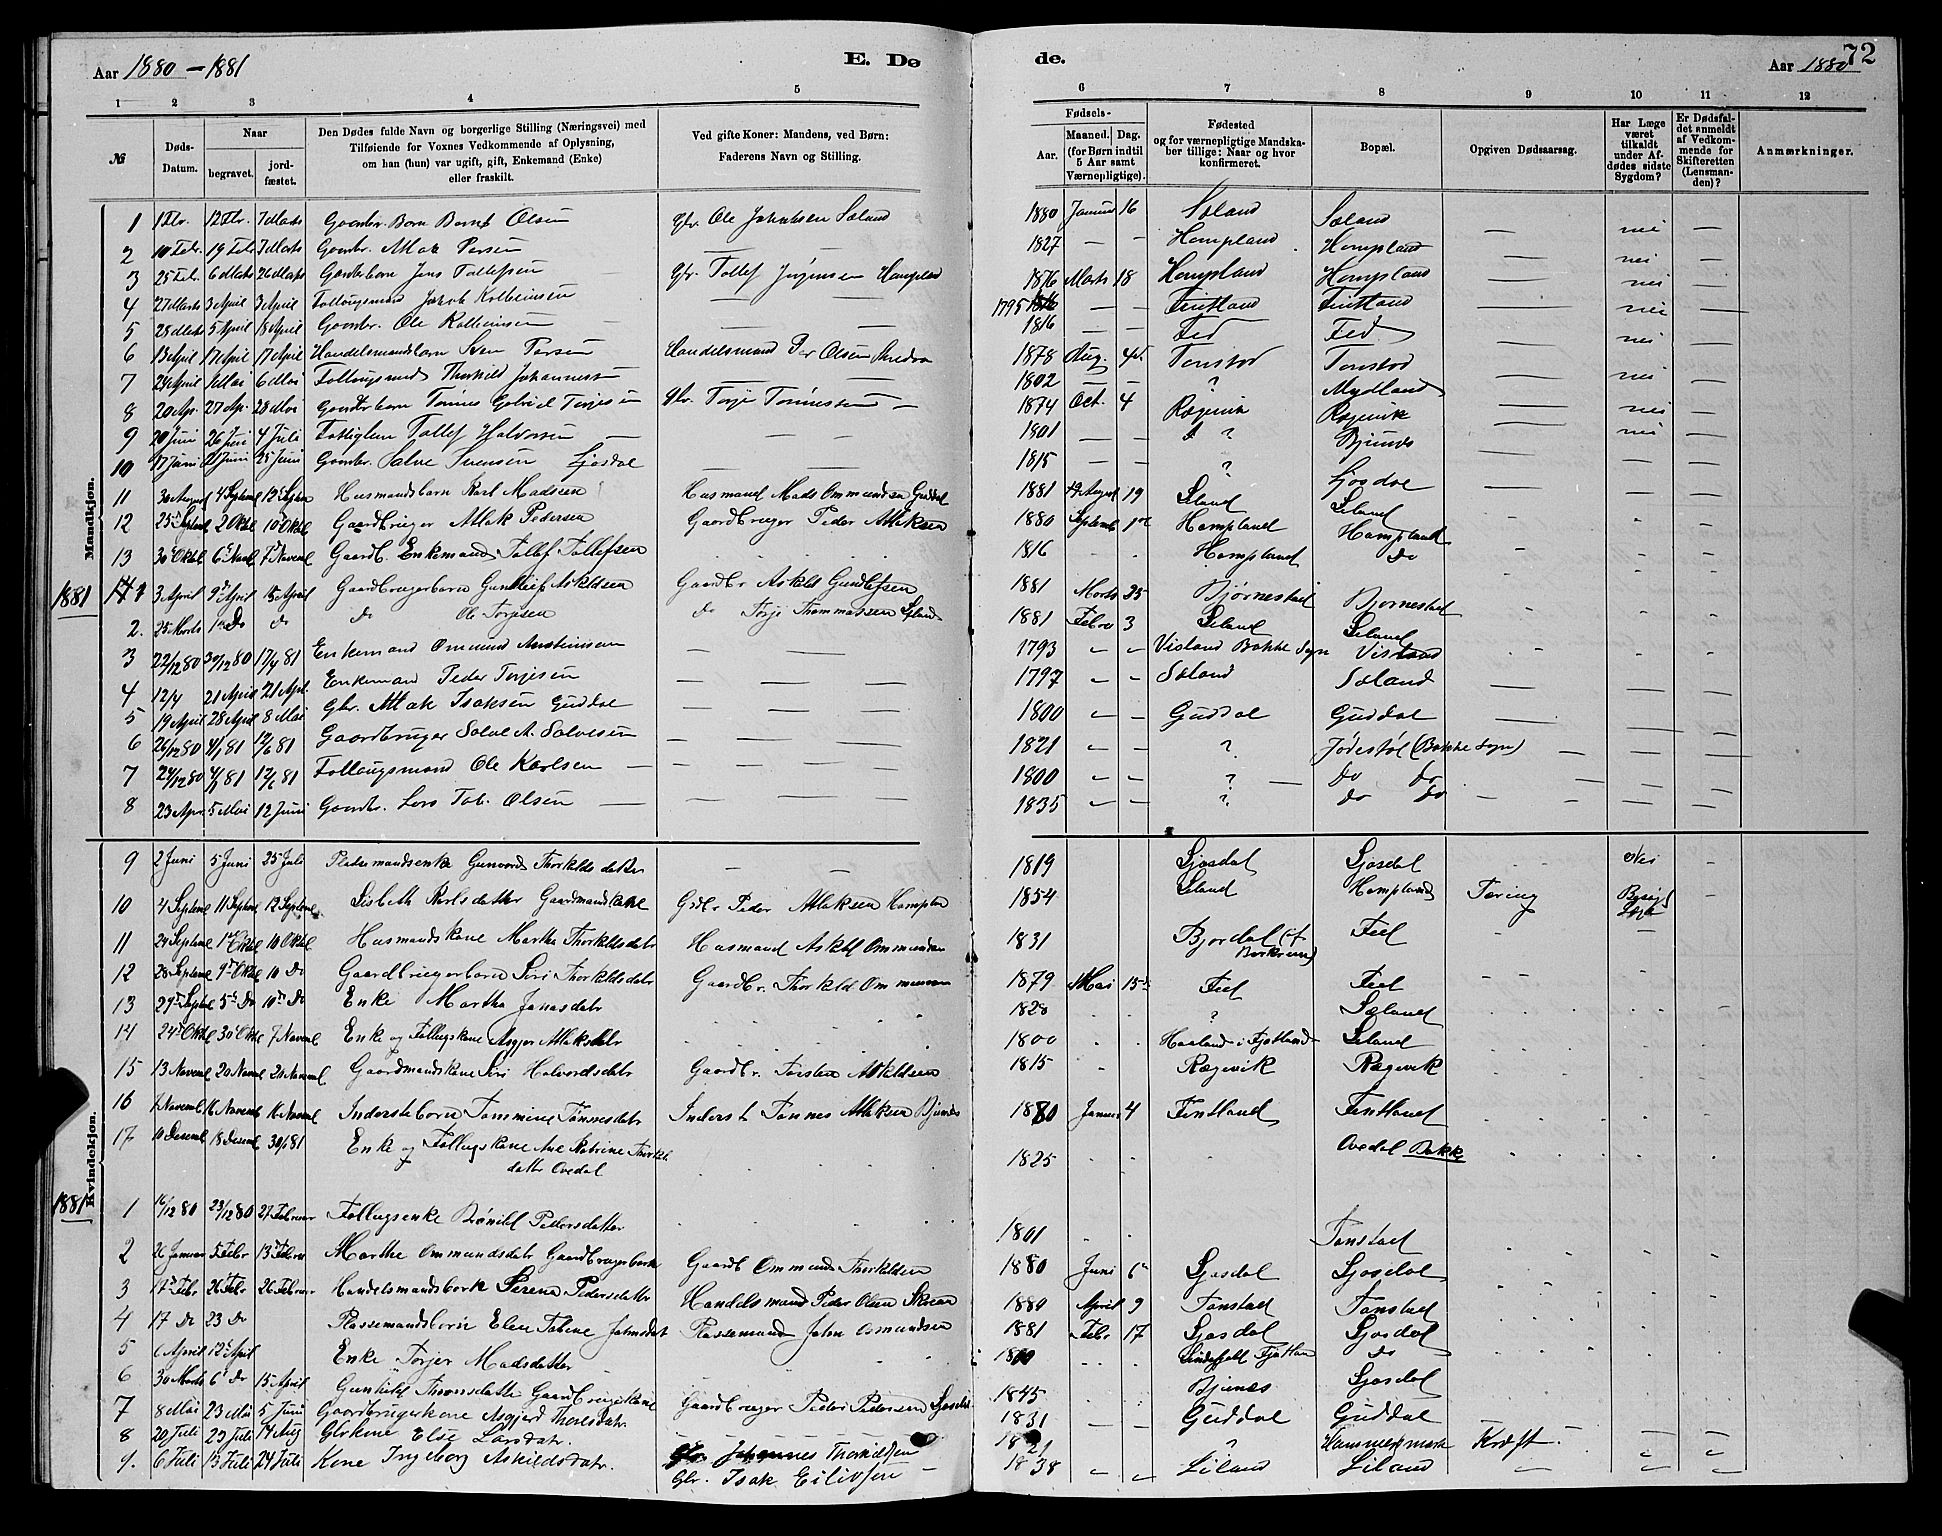 Aar 1880-1881
E. Dø
de.
Aar 1880
72
1 2 3 4 5
6 7 8 9 10 11 12
№
Døds-Datum.
Naar
begravet.
jord-fæstet.
Den Dødes fulde Navn og borgerlige Stilling (Næringsvei) med
Tilføiende for Voxnes Vedkommende af Oplysning,
om han (hun) var ugift, gift, Enkemand (Enke)
eller fraskilt.
Ved gifte Koner: Mandens, ved Børn:
Faderens Navn og Stilling.
Fødsels-
Aar.
Maaned. Dag.
(for Børn indtil
5 Aar samt
Værnepligtige).
Fødested
og for værnepligtige Mandska-
ber tillige: Naar og hvor
konfirmeret.
Bopæl.
Opgiven Dødsaarsag.
Har Læge
været
tilkaldt
under Af-
dødes sidste
Sygdom?
Er Dødsfal-
det anmeldt
af Vedkom-
mende for
Skifteretten
(Lensman-
den)?
Anmærkninger.
Mandkjøn.
1 1 Fbr. 12 Fbr. 7 Marts Gaardbr. Barn Olsen Gbr. Ole Sæland 1880 Januar 16 Sæland Sæland — nei —
2 10 Febr. 19 Feb. 7 Marts Gaardbr. Atlak Persen — 1827 — — Hompland Hompland — nei —
3 25 Feb. 6 Marts 26 Marts Gaardbr.barn Jens Tollefsen Gbr. Tollef Jørgensen Hompland 1876 Marts 18 Hompland Hompland — nei —
4 27 Marts 3 April 3 April Follougsmand Jakob Kolbeinsen — — 1795 — — Fintland Fintland — nei —
5 28 Marts 5 April 18 April Gaardbr. Ole Kolbeinsen — — 1816 — — Fed Fed — nei —
6 13 April 17 April 17 April Handelsmandsbarn Sven Persen Handelsmand Per Olsen 1878 Aug. 4 Tonstad Tonstad — nei —
7 24 April 1 Mai 6 Mai Follougsmand Thorkild Johannesen — — 1802 — — ? Mydland — nei —
8 20 Ap. 27 Ap. 28 Mai Gaardbr.barn Tønnes Gabriel Torjesen Gbr. Torje Tønnessen — 1874 Oct. 4 Rægevik Rægevik — nei —
9 20 Juni 26 Juni 4 Juli Fattiglem Tollef Halvorsen — — — 1801 — — ? Bjunes — nei —
10 17 Juni 21 Juni 25 Juni Gaardbr. Salve Svensen Sjosdal — — 1815 — — ? Sjosdal — —
11 30 August 4 Septemb 12 Septem Husmandsbarn Karl Madsen Husmand Mads Ommundsen Guddal 1881 August 19 Seland Seland
12 25 Septemb 2 Oktbl 10 Oktbl Gaardbruger Atlak Pedersen Gaardbruger Peder Atlaksen 1880 Septemb 1 Hompland Hompland
13 30 Oktbl 6 Novl 7 Novembl Gaardb. Enkemand Tollef Tollefsen 1816 Hompland Do
1881 1 3 April 9 April 15 April Gaardbrugerbarn Gunleif Askildsen Gaardbr Askild Gunlefsen 1881 Marts 25 Bjørnestad Bjørnestad
2. 25 Marts Do do do Ole Torjesen do Torje Thommassen Seland 1881 Febr 3 Seland Seland
3 22/12 80 30/12 80 17/4 81 Enkemand Ommund Austensen — — — 1793 — — Visland Bakke Sogn Visland —
4 12/4 21 April 21 Apl. Enkemand Peder Torjesen — — — 1797 — — Sæland Sæland —
5 19 April 28 April 8 Mai Gbr. Atlak Isaksen Guddal — — — 1800 — — Guddal Guddal —
6 26/12 80 4/1 81 12/6 81 Gaardbruger Salve A. Salvesen — — — 1821 — — ? Jødestøl (Bakke Sogn) — — —
7 24/12 80 4/1 81 12/6 81 Follougsmand Ole Karlsen — — — 1800 — — ? — do do — — —
8 23 Apr. 5 Mai 12 Juni Gaardbr. Lars Tob. Olsen — — — 1835 — — ? do do — — —
Kvindekjøn.
9 2 Juni 5 Juni 25 Juli Pladsmandsenke Gunvord Thorkildsdatter — — 1819 Sjosdal Sjosdal Nei —
10 4 Septemb 11 Septemb 12 Septemb Lisbeth Karlsdatter Gaardmandskone Grdbr Peder Atlaksen Homplan 1854 Seland Hompland Tæring —
11 24 Septemb 1 Oktbl 10 Oktbl Husmandskone Martha Thorkildsdatr Husmand Askild Ommundsen 1831 Bjordal (i Birkrem) Fed —
12 28 Septemb 9 Oktbl 10 Do Gaardbrugerbarn Siri Thorkildsdatr Gaardbr. Thorkild Ommunsen 1879 Mai 15 Fed Fed
13 29 Septbl 5 Do 10 Do Enke Martha Jonasdatr 1820 ? Sæland
14 24 Oktbl 30 Oktbl 7 Novembl Enke og Follugskone Asgjer Atlaksdatr 1800 Haaland i Fjotland Seland
15 13 Novembl 20 Novembl 21 Novembl Gaardmandskone Siri Halvordsdatr Gaardbr. Torsten Askildsen 1815 Rægevik Rægevik
16 7 Novembl 16 Novembl 16 Novembl Inderstebarn Tønnesdatr Inderst Tønnes Atlaksen Bjunes 1880 Januar 4 Fintland Fintland
17. 10 Desembl 18 Desembl 30/1 81 Enke og Follugskone Ane Katrine Thorkilds
datter Ovedal 1825 Ovedal Bakke
1881 1 16/12 80 23/12 80 27 Februar Follugsenke Brønild Pedersdatter 1801 Tonstad
2 26 Januar 5 Febr 13 Febru Marthe Ommundsdatr Gaardbrugerbarn Gaardb Ommund Thorkildsen 1880 Juni 6 Sjosdal Sjosdal
3 17 Febr 26 Febr 26 Februar Handelsmandsbarn Serena Pedersdatter Handelsmand Peder Olsen Skreaa 1880 April 9 Tonstad Tonstad
4 17 Do 23 Do Plassemandsbarn Elen Tobine Johnsdatr Plassemand John Osmundsen 1881 Febr 17 Sjosdal Sjosdal
5 6 April 12 April Enke Torjer Madsdatter Lindefjeld Fjotlan Do
6 30 Marts 6 Do 15 April Gunhild Thoresdatter Gaardbrugerkone Gaardbruger Peder Pedersen Sjosdal 1845 Bjunes Sjosdal
7 8 Mai 23 Mai 5 Juni Gaardbrugerkone Asgjerd Tharlsdatr — — — 1831 — — Guddal Guddal
8 20 Juli 29 Juli 14 Aug Gbrkone Else Larsdatr. Gbr. Johannes Thorkildsen 1821 ? Hammersmark Kræft.
9. 6 Juli 13 Juli 24 Juli Kone Ingeborg Askildsdatr. Gbr. Isak Eilivsen — 1838 Liland Liland —